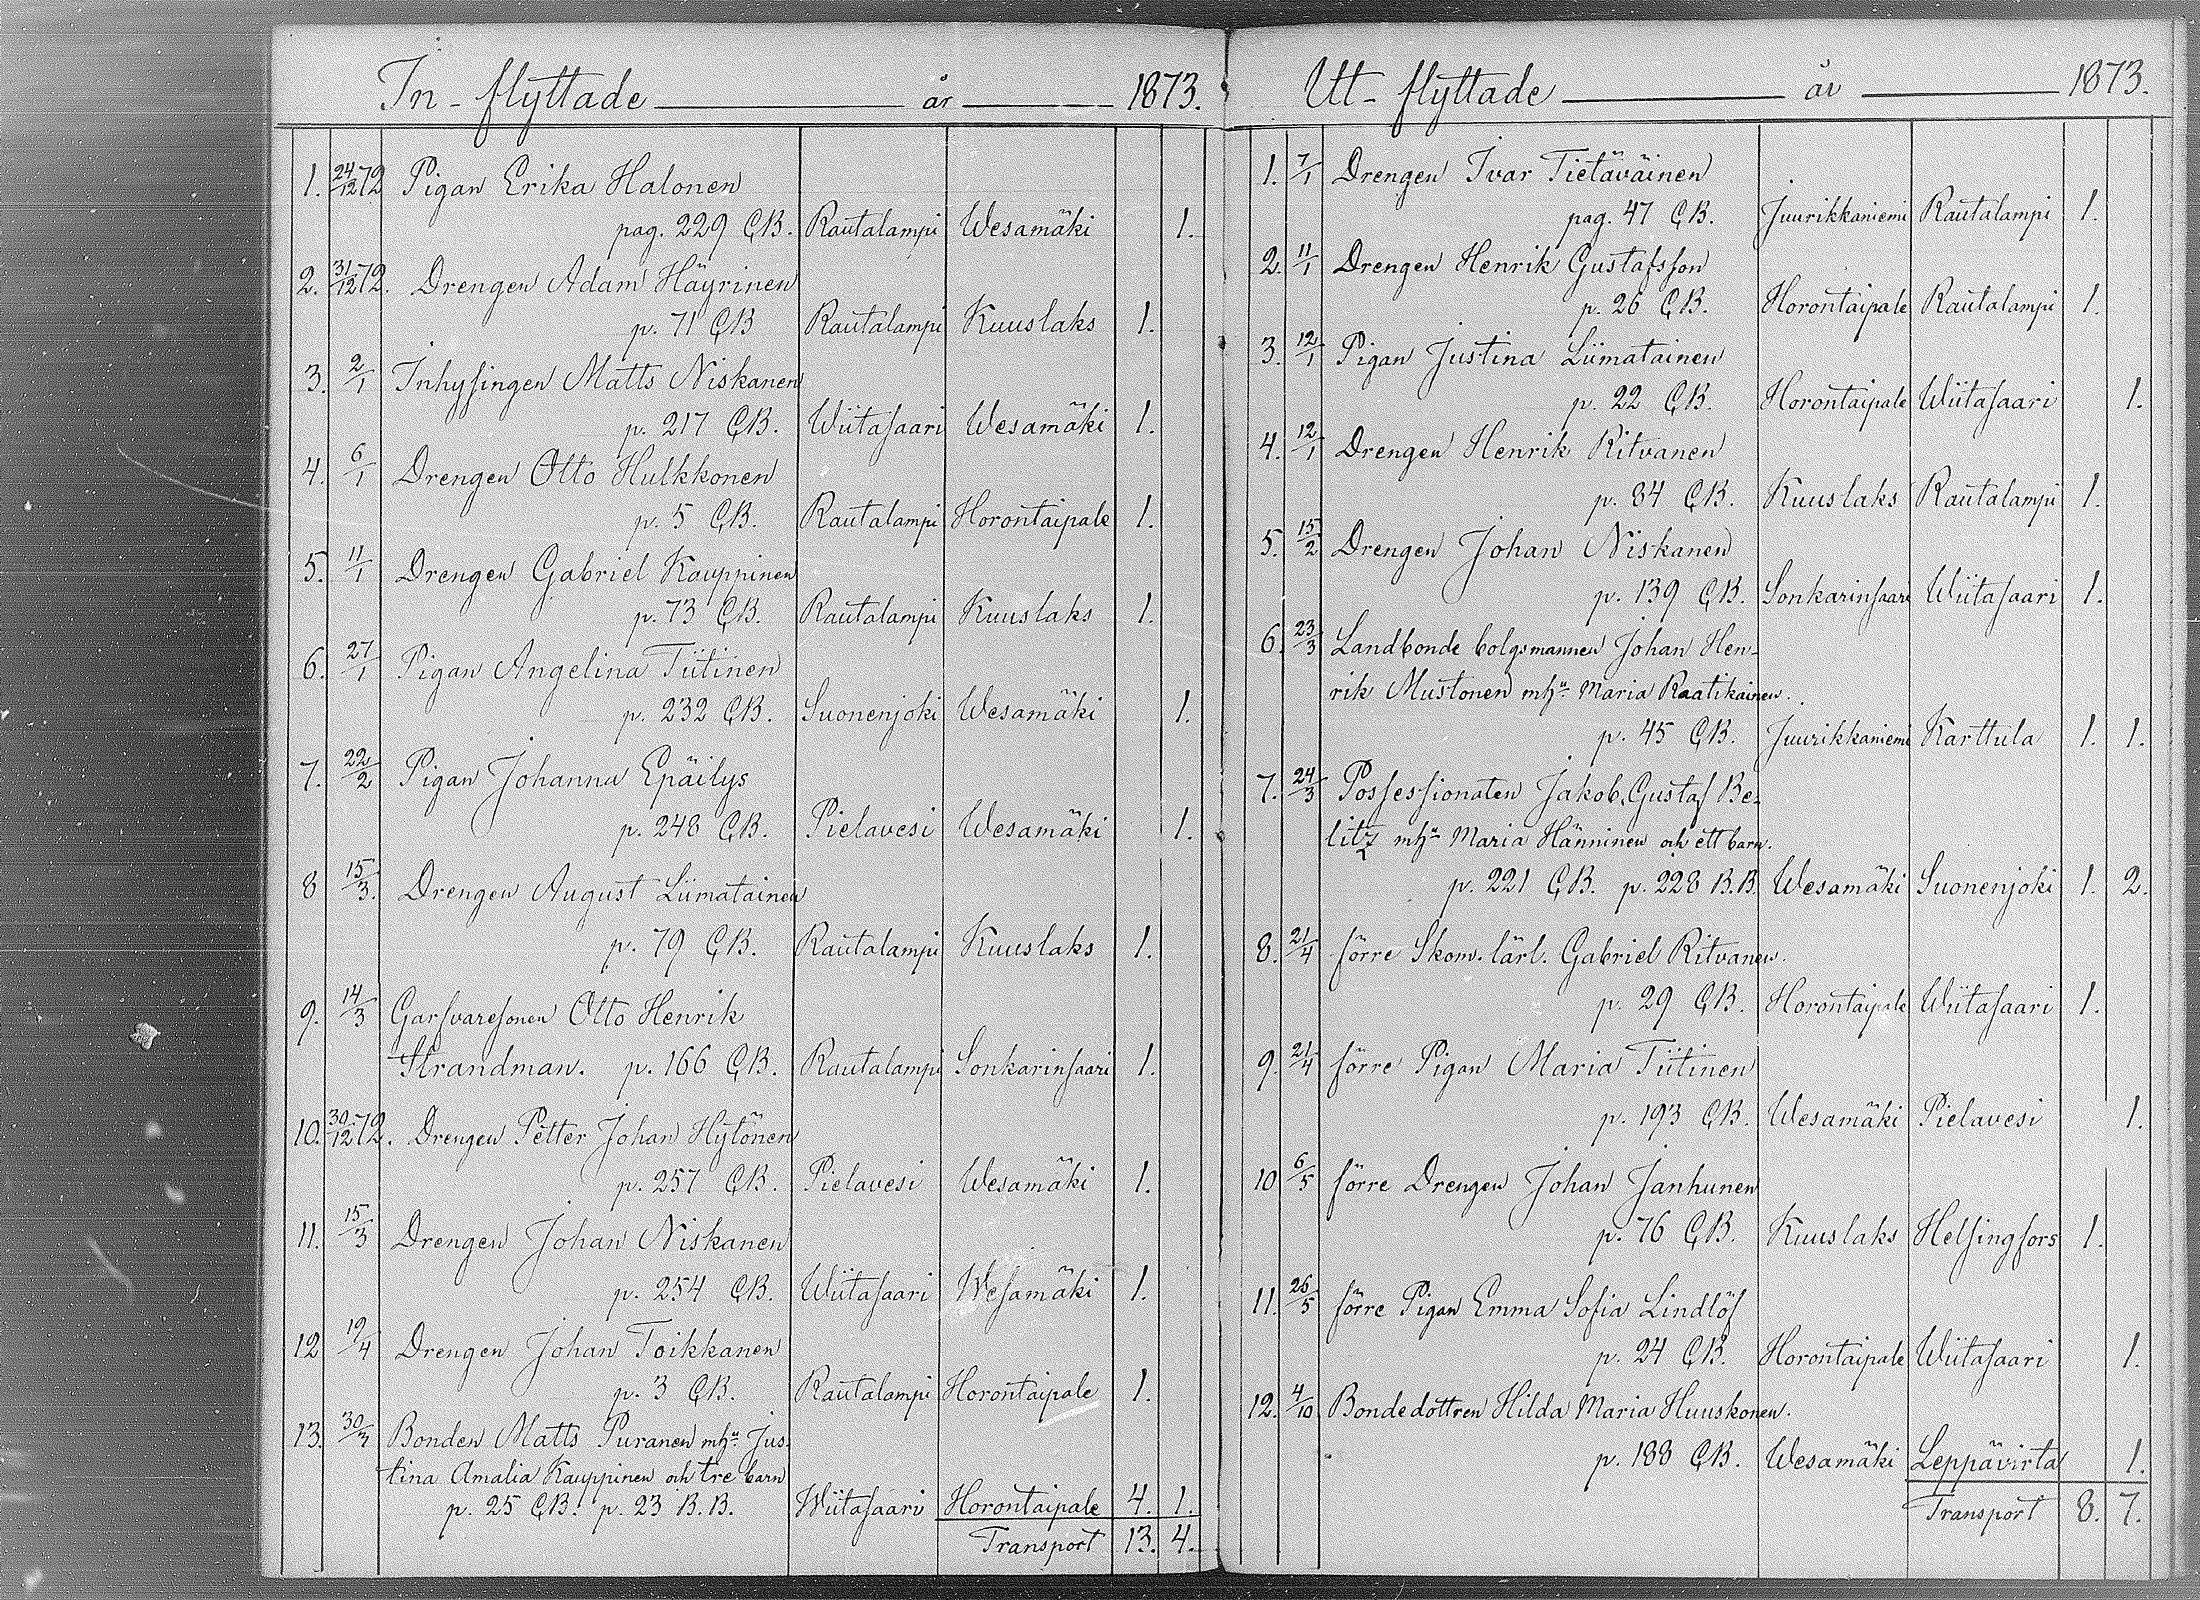 In-flyttade år 1873.
1. 24/12 72 Pigan Erika Halonen
pag. 229 C.B. Rautalampi Wesamäki 1.
2. 31/12 72. Drengen Adam Häyrinen
p. 71 C.B Rautalampi Kuuslaks 1.
3. 2/1 Inhysingen Matts Niskanen
p. 217 C.B. Wiitasaari Wesamäki 1.
4. 6/1 Drengen Otto Hulkkonen
p. 5 C.B. Rautalampi Horontaipale 1.
5. 11/1 Drengen Gabriel Kauppinen
p. 73 C.B. Rautalampi Kuuslaks 1.
6. 27/1 Pigan Angelina Tiitinen
p. 232 C.B. Suonenjoki Wesamäki 1.
7. 22/2 Pigan Johanna Epäilys
p. 248 C.B. Pielavesi Wesamäki 1.
8 15/3. Drengen August Liimatainen
p. 79 C.B. Rautalampi Kuuslaks 1.
9. 14/3 Garfvaresonen Otto Henrik
Strandman. p. 166 C.B. Rautalampi Sonkarinsaari 1.
10. 30/12 72. Drengen Petter Johan Hytönen
p. 257 C.B. Pielavesi Wesamäki 1.
11. 15/3 Drengen Johan Niskanen
p. 254 C.B. Wiitasaari Wesamäki 1.
12 19/4 Drengen Johan Toikkanen
p. 3 C.B. Rautalampi Horontaipale 1.
13. 30/3 Bonden Matts Puranen mhu Jus-
tina Amalia Kauppinen och tre barn
p. 25 C.B. p. 23 B.B. Wiitasaari Horontaipale 4. 1.
Transport 13. 4.
Ut-flyttade år 1873.
1. 7/1 Drengen Ivar Tietäväinen
pag. 47 C.B. Juurikkaniemi Rautalampi 1.
2. 11/1 Drengen Henrik Gustafsson
p. 26 C.B. Horontaipale Rautalampi 1.
3. 12/1 Pigan Justina Liimatainen
p. 22 C.B. Horontaipale Wiitasaari 1.
4. 12/1 Drengen Henrik Ritvanen
p. 84 C.B. Kuuslaks Rautalampi 1.
5. 15/2 Drengen Johan Niskanen
p. 139 C.B. Sonkarinsaari Wiitasaari 1.
6. 23/3 Landbonde bolgsmannen Johan Hen-
rik Mustonen mhu Maria Raatikainen.
p. 45 C.B. Juurikkaniemi Karttula 1. 1.
7. 24/3 Possessionaten Jakob Gustaf Be-
litz mhu Maria Hänninen och ett barn.
p. 221 C.B. p. 228 B.B. Wesamäki Suonenjoki 1. 2.
8. 21/4 förre Skom. lärl. Gabriel Ritvanen.
p. 29 C.B. Horontaipale Wiitasaari 1.
9. 21/4 förre Pigan Maria Tiitinen
p. 193 C.B. Wesamäki Pielavesi 1.
10 6/5 förre Drengen Johan Janhunen
p. 76 C.B. Kuuslaks Helsingfors 1.
11. 26/5 förre Pigan Emma Sofia Lindlöf
p. 24 C.B. Horontaipale Wiitasaari 1.
12. 4/10 Bondedottren Hilda Maria Huuskonen.
p. 188 C.B. Wesamäki Leppävirta 1.
Transport 8. 7.